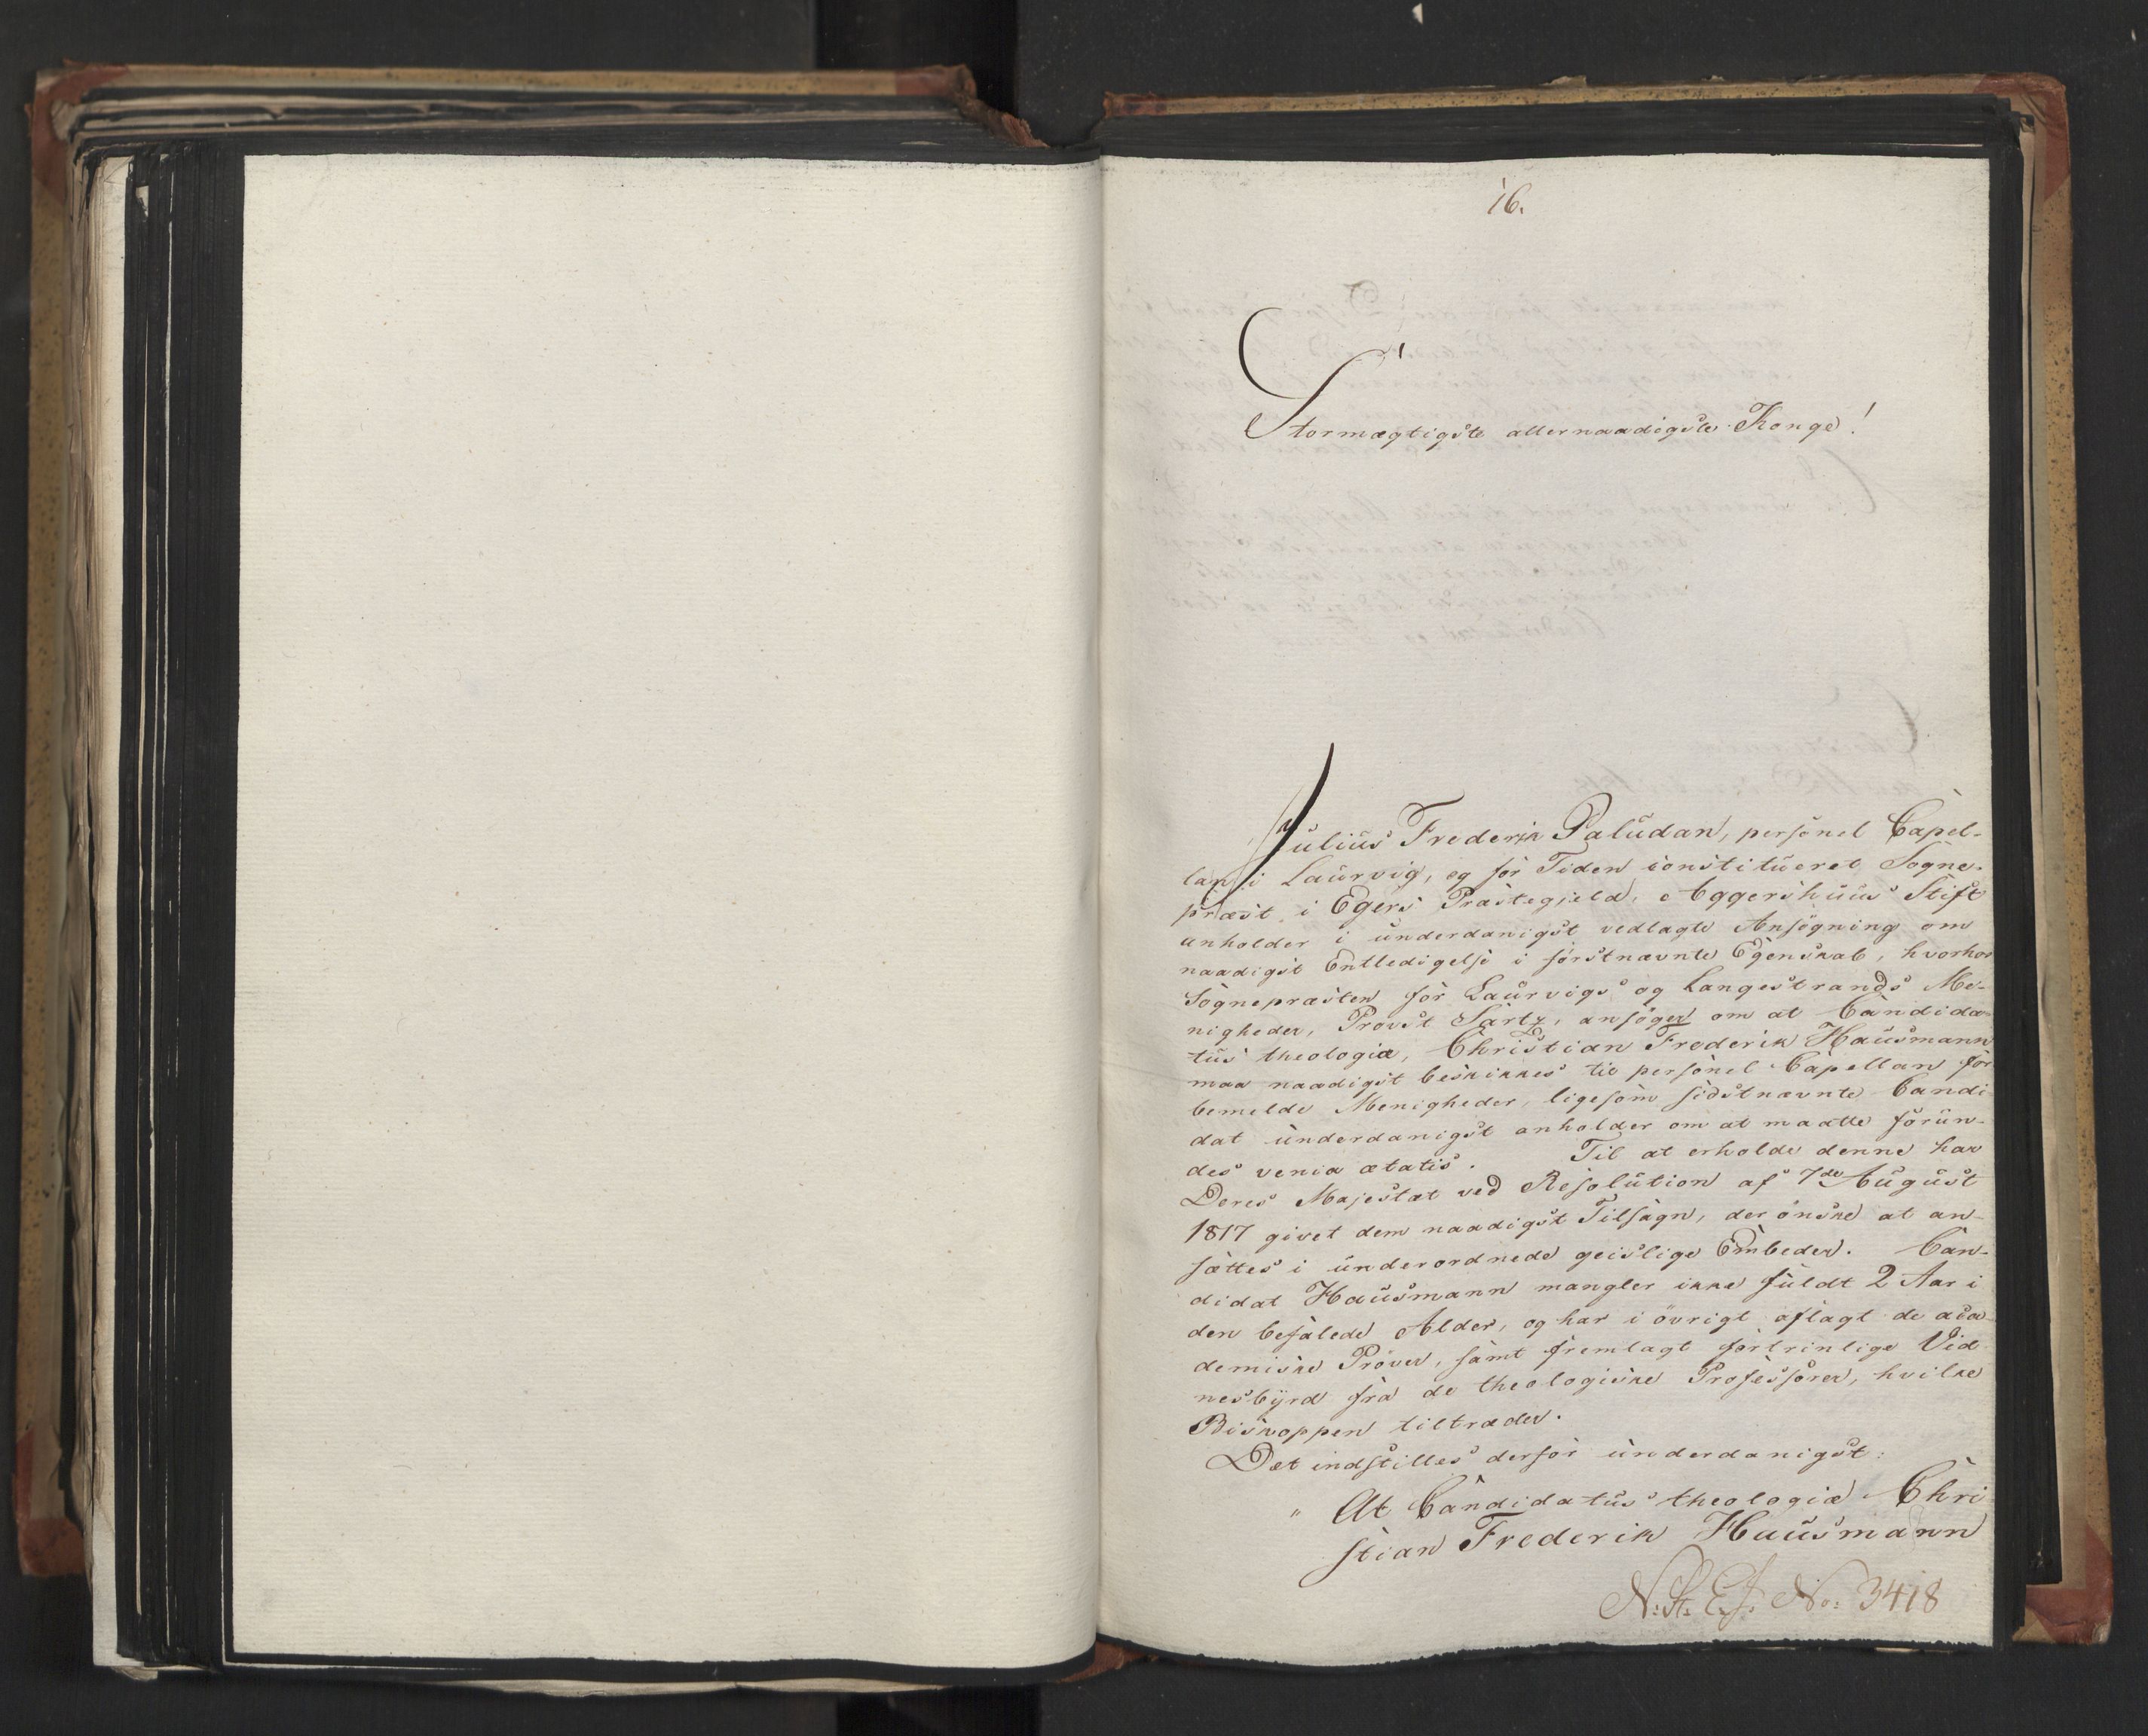 16.
Stormægtigste allernaadigste Konge!
Julius Frederik Paludan, personel Capel-
lan i Laurvig, og for Tiden constitueret Sogne-
præst i Egers Præstegjeld, Aggershuus Stift
anholder i underdanigst vedlagte Ansøgning om
naadigst Entledigelse i førstnævnte Egenskab, hvorhos
Sognepræsten for Laurvigs og Langestrands Me-
nigheder, Provst Sartz, ansøger om at Candida-
tus theologiæ, Christian Frederik Hausmann
maa naadigst beskikkes til personel Capellan for
bemeldte Menigheder, ligesom sidstnævnte Candi-
dat underdanigst anholder om at maatte forun-
des venia ætatis. Til at erholde denne har
Deres Majestæt ved Resolution af 7de August
1817 givet dem naadigst Tilsagn, der ønske at an-
sættes i underordnede geistlige Embeder. Can-
didat Hausmann mangler ikke fuldt 2 Aar i
den befalede Alder, og har i øvrigt aflagt de aca-
demiske Prøver, samt fremlagt fortrinlige Vid-
nesbyrd fra de theologiske Professorer, hvilke
Biskoppen tiltræder.
Det indstilles derfor underdanigst:
" At Candidatus theologiæ Chri-
stian Frederik Hausmann
N: St: E. J. No: 3418